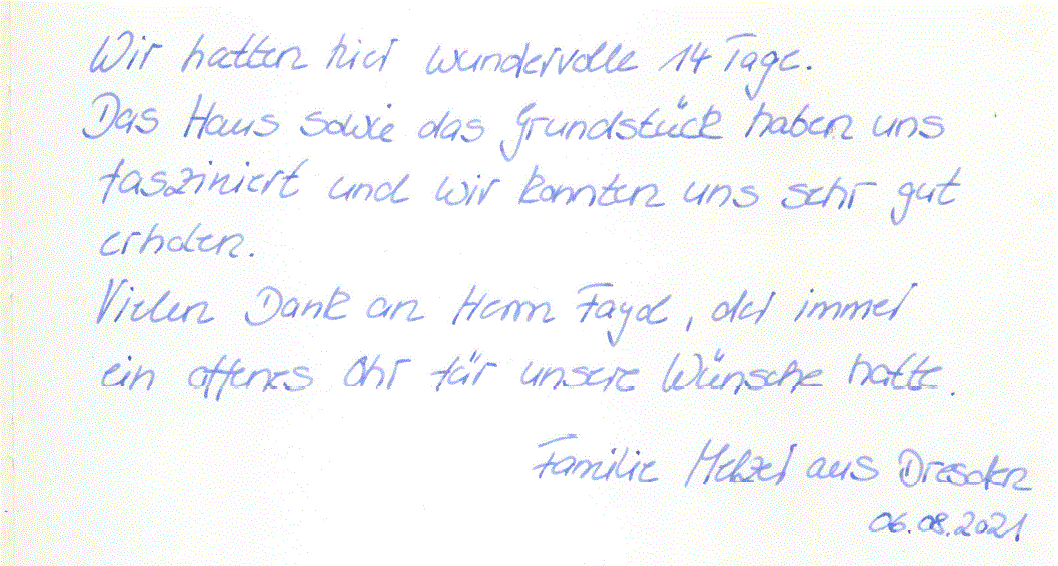 Wir hatten hier wundervolle 14 Tage.
Das Haus sowie das Grundstück haben uns
fasziniert und wir konnten uns sehr gut
erholen.
Vielen Dank an Herrn Fayd, der immer
ein offenes Ohr für unsere Wünsche hatte.
Familie Melzer aus Dresden
06.08.2021